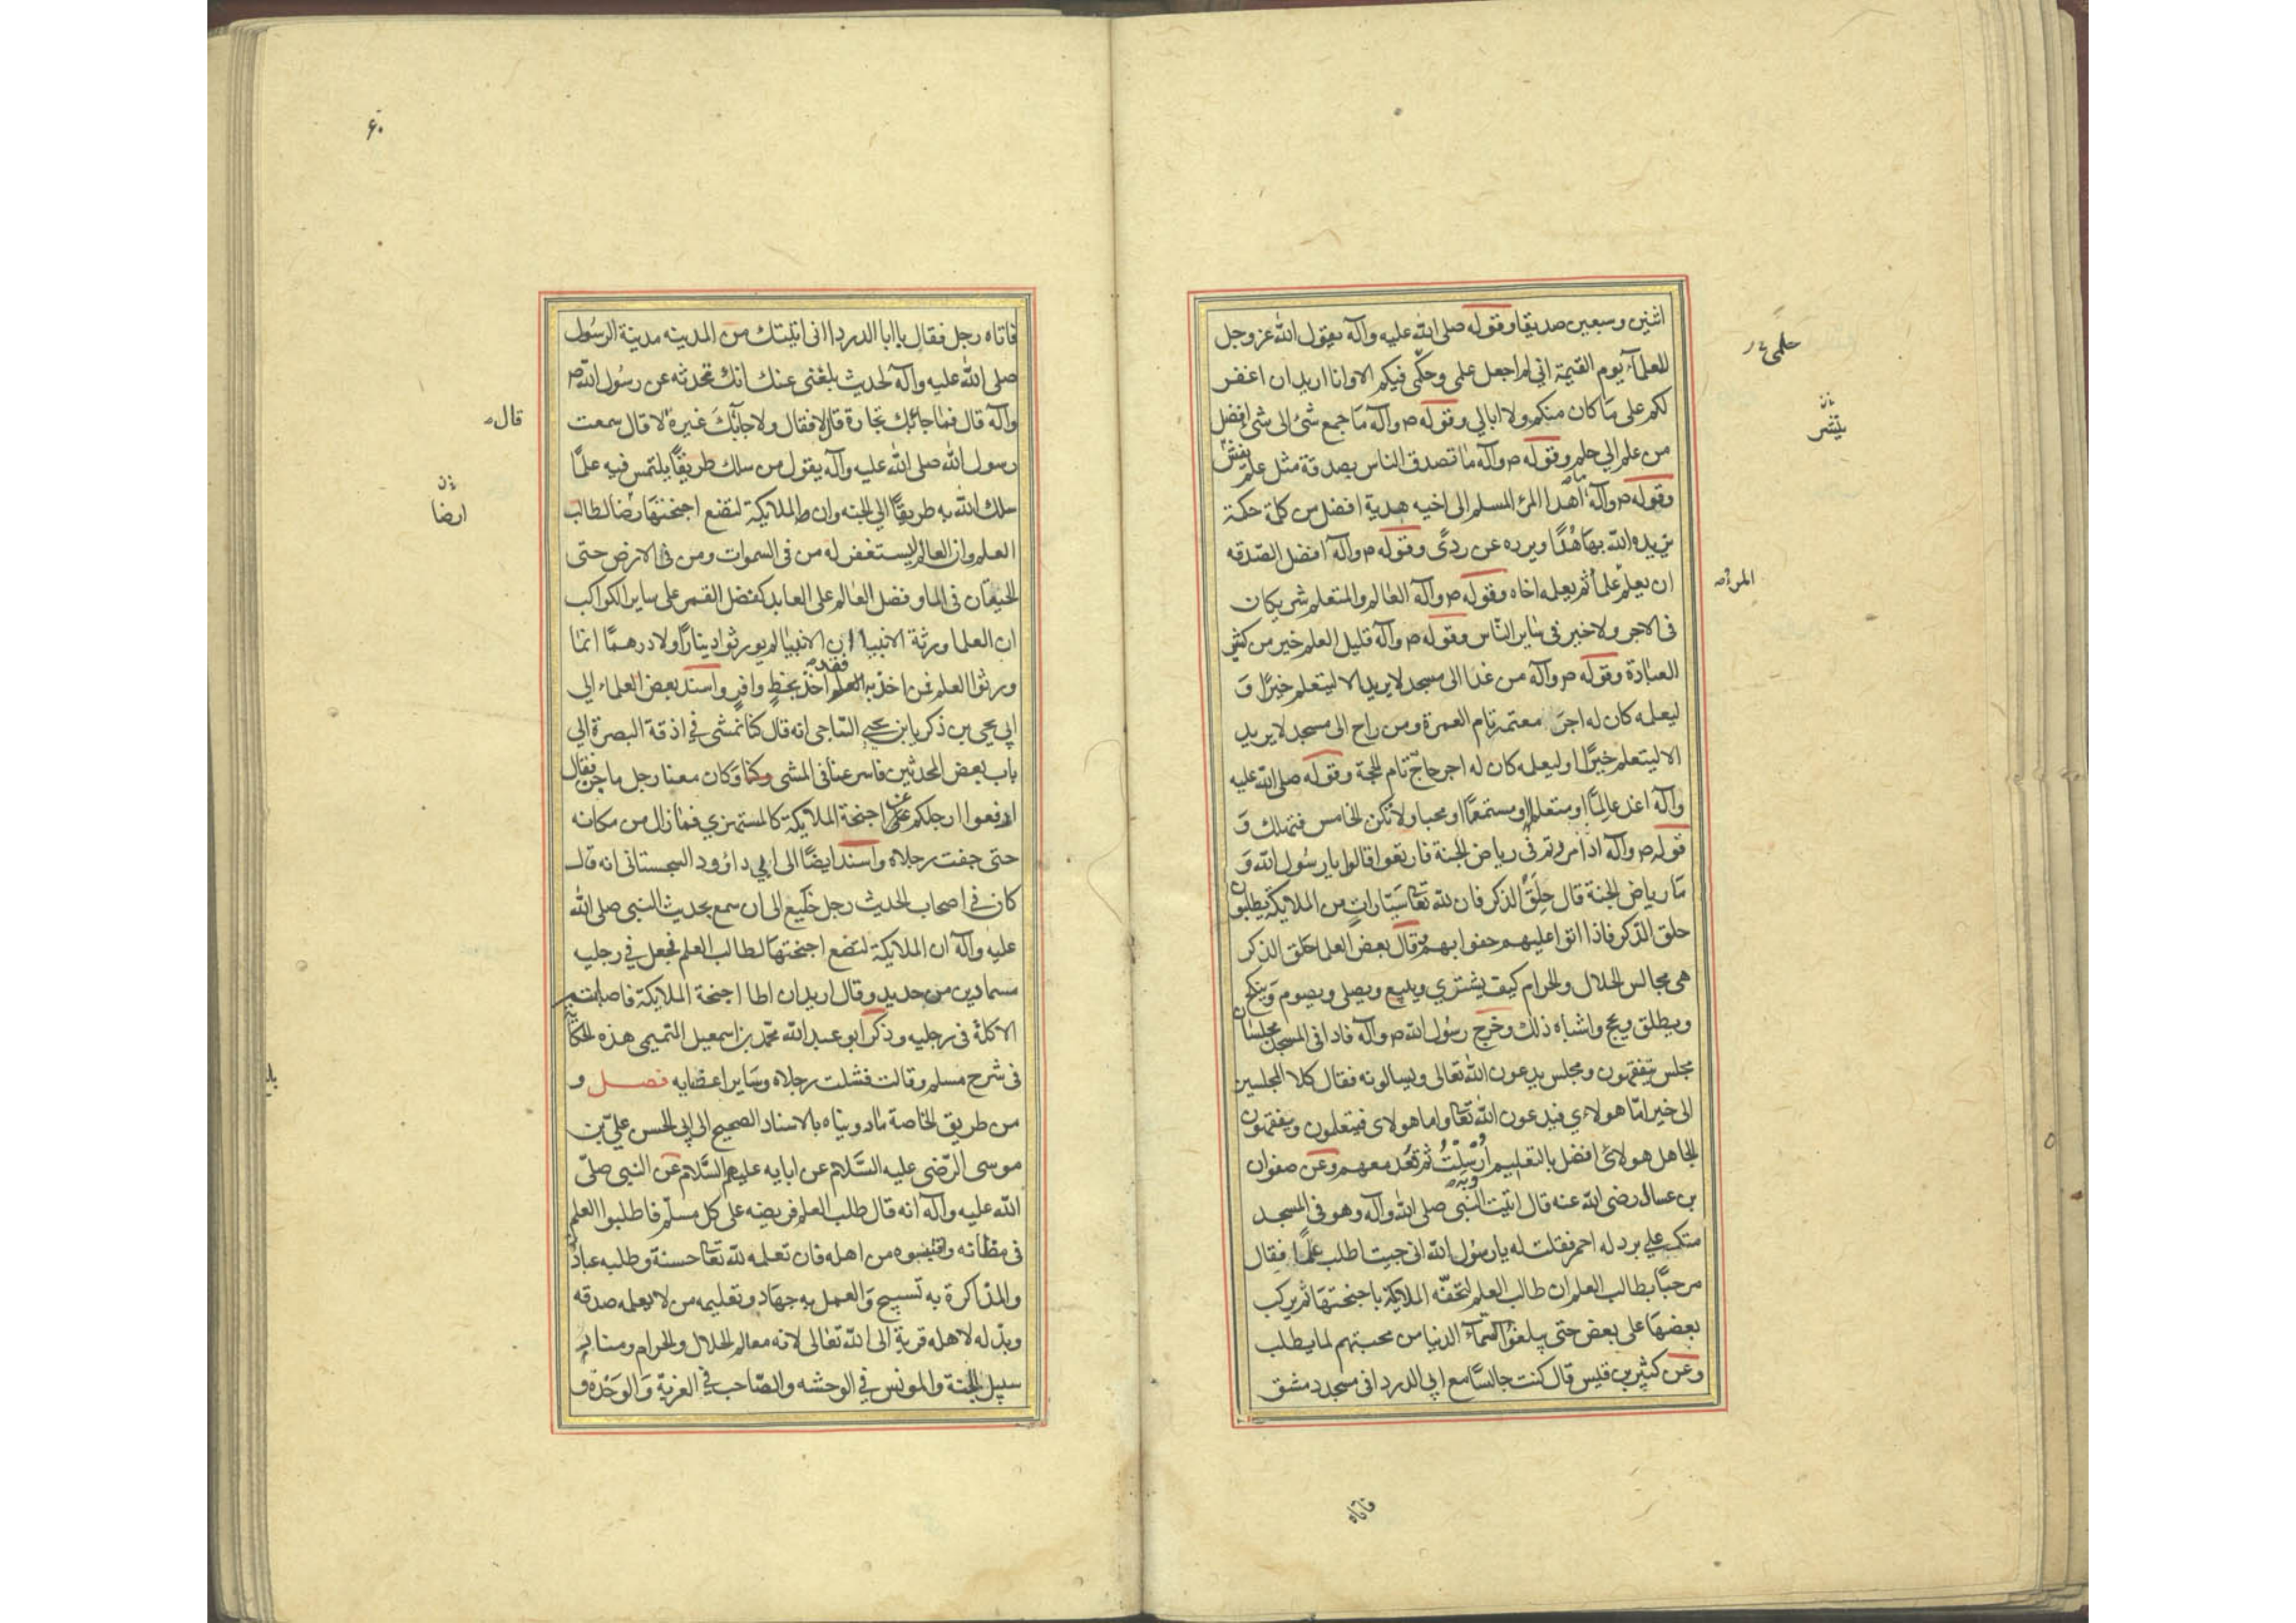 اثنين وسبعين صديقا وقوله صلى الله عليه وآله يقول الله عز وجل
للعلمآء يوم القيمة انى لم اجعل علمى وحكمى فيكم الا وانا اريد ان اغفر
لكم على ما كان منكم ولا ابالي وقوله ص وآله ما جمع شئ الى شئ افضل
من علم الي حلم وقوله ص وآله ما تصدق الناس بصدقة مثل علم
وقوله ص وآله ما اهدا المرؤ المسلم الى اخيه هدية افضل من كلمة حكمة
يزيده الله بها هدًا ويرده عن ردًى وقوله ص وآله افضل الصدقه
ان يعلم علما ثم يعلمه اخاه وقوله ص وآله العالم والمتعلم شريكان
فى الاجر ولا خير فى ساير الناس وقوله ص وآله قليل العلم خير من كثير
العبادة وقوله ص وآله من غدا الى مسجد لا يريد الا ليتعلم خيرًا وَ
ليعلمه كان له اجر معتمر تام العمرة ومن راح الى مسجد لا يريد
الا ليتعلم خيرًا او ليعلمه كان له اجر حاجّ تام الحجة وقوله صلى الله عليه
وآله اغد عالمًا او متعلما او مستمعًا او محبا ولا تكن الخامس فتهلك وَ
قوله ص وآله اذا مررتم فى رياض الجنة فارتعوا قالوا يا رسول الله وَ
ما رياض الجنة قال حِلَقُ الذكر فان لله تعا سيّاراتٍ من الملايكة يطلبون
حلق الذكر فاذا اتوا عليهم حفوا بهم وقال بعض العلما حلق الذكر
هى مجالس الحلال والحرام كيف يشترى ويبيع ويصلى ويصوم وَينكح
ويطلق ويحج واشباه ذلك وخرج رسول الله ص وآله فاذا فى المسجد مجلسان
مجلس يتفقهون ومجلس يدعون الله تعالى ويسالونه فقال كلا المجلسين
الى خير امّا هولاءِ فيدعون الله تعا واما هولاى فيتعلمون ويفقهون
الجاهل هولاى افضل بالتعليم اُرْسِلْتُ ثم قعد معهم وعن صفوان
بن عسال رضى الله عنه قال اتيت النبى صلى الله وآله وهو فى المسجد
متكي علي برد له احمر فقلت له يا رسول الله انى جيت اطلب علمًا فقال
مرحبًا بطالب العلم ان طالب العلم لتحفّه الملايكة باجنحتها ثم يركب
بعضها على بعض حتى يبلغوا السمآء الدنيا من محبتهم لما يطلب
وعن كثير بن قليس قال كنت جالسًا مع ابي الدردا فى مسجد دمشق
فاتاه
علمى
ينشر
المرؤ
٦٠
فاتاه رجل فقال يا ابا الدردا انى اتيتك من المدينه مدينة الرسول
صلى الله عليه وآله لحديث بلغنى عنك انك تحدثه عن رسول الله ص
وآله قال فما جائك بك تجارة قال لا فقال ولا جآئك غيره لا قال سمعت
رسول الله صلى الله عليه وآله يقول من سلك طريقًا يلتمس فيه علمًا
سلك الله به طريقًا الي الجنه وان الملايكة لتضع اجنحتها رضا لطالب
العلم وان العالم ليستغفر له من فى السموات ومن فى الارض حتى
الحيتان فى الما وفضل العالم على العابد كفضل القمر على ساير الكواكب
ان العلما ورثة الانبيا ان الانبيا لم يورثوا دينارًا ولا درهمًا انما
ورثوا العلم فمن اخذ به فقد اخذ بحظٍ وافرٍ واسند بعض العلماء الي
ابي يحيى بن ذكريا ابن يحيى الساجى انه قال كنا نمشى فى اذقة البصرة الي
باب بعض المحدثين فاسرعنا فى المشى وكنا وكان معنا رجل ماجن فقال
ارفعوا ارجلكم عن اجنحة الملايكة كالمستهزي فما زال من مكانه
حتى جفت رجلاه واسند ايضًا الى ابي داؤود السجستانى انه قال
كان فى اصحاب الحديث رجل خليع الى ان سمع بحديث النبى صلى الله
عليه وآله ان الملايكة لتضع اجنحتها لطالب العلم فجعل في رجليه
مسمارين من حديد وقال اريد ان اطا اجنحة الملايكة فاصابته
الاكلة فى رجليه وذكر ابو عبد الله محمد بن اسمعيل التميمى هذه الحكاية
فى شرح مسلم وقالت فشلت رجلاه وساير اعضايه فصل و
من طريق الخاصة ما روينا ه بالاسناد الصحيح الى ابى الحسن علىّ بن
موسى الرّضى عليه السّلام عن ابايه عليهم السّلام عن النبى صلّى
الله عليه وآله انه قال طلب العلم فريضه على كل مسلم فاطلبوا العلم
فى مظانه واقتبسوه من اهله فان تعلمه لله تعا حسنة وطلبه عبادة
والمذاكرة به تسبيح وَالعمل به جهاد وتعليمه من لا يعلمه صدقه
وبذله لاهله قربة الى الله تعالى لانه معالم الحلال والحرام ومنار
سبيل الجنة والمونس فى الوحشه والصّاحب فى الغربة وَالوَحْدة و
قال
ارضا